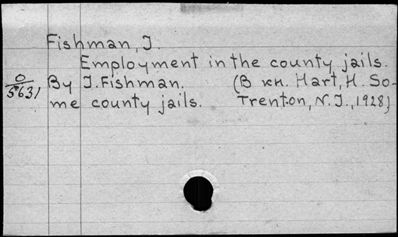 Fishman, J.
Employment in the county jails.
O
5631
By J. Fishman. (В кн. Hart, H. So-
me county jails. Trenton, N. J., 1928)